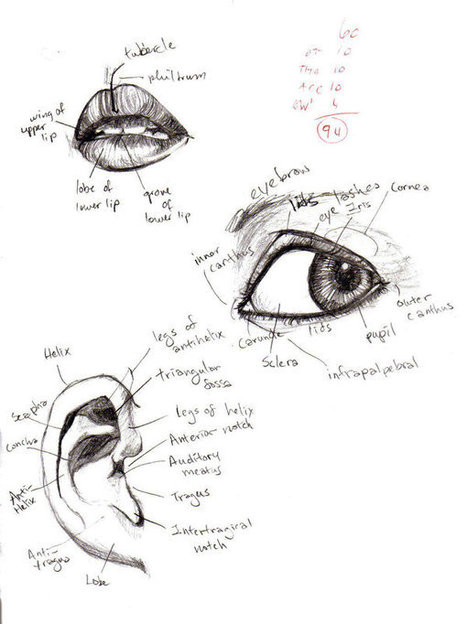 tubercle
philtrum
wing of
upper
lip
lobe of
lower lip
grove of
lower lip
60
10
10
Arc 10
4
94
eyebrow
lids
lashes
cornea
eye Iris
inner
canthus
outer
canthus
Carunde
lids
pupil
Sclera
infrapalpebral
legs of
antihelix
Helix
triangular
fossa
Scapha
legs of helix
Concha
Anterior notch
Auditory
meatus
Anti-
Helix
Tragus
Intertragical
notch
Anti-
tragus
Lobe